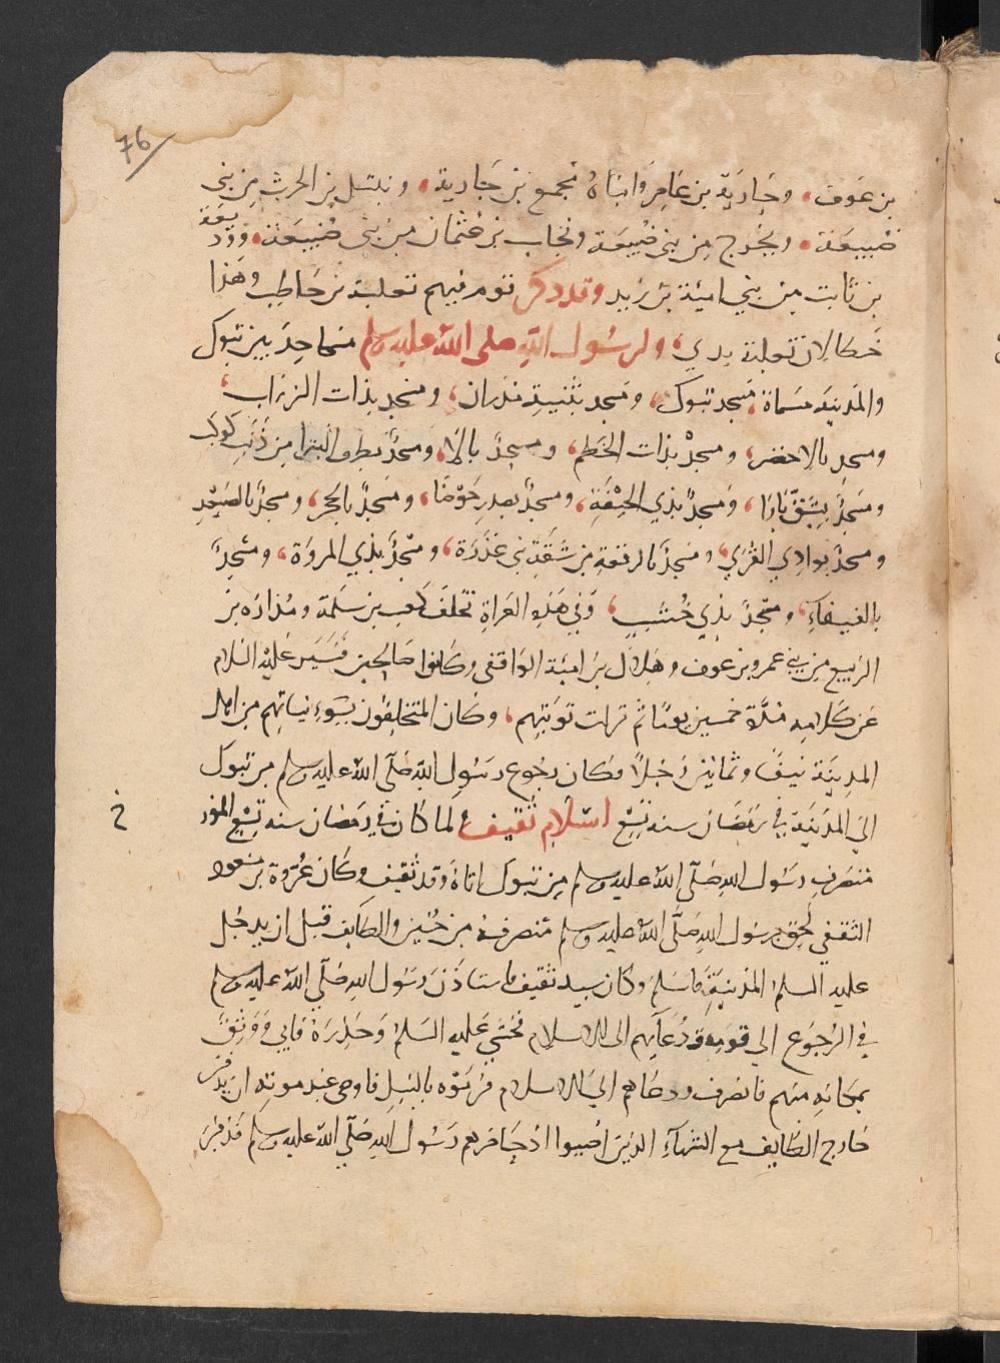 76
بن عوف، وجارية بن عامر وابناه مجمع بن جارية، ونبتل بن الحرث من بني
ضبيعة، وبخزج من بني ضبيعة وبجاد بن عثمان من بني ضبيعة، ووديعة
بن ثابت من بني امية بن زيد وقد ذكر قوم فيهم ثعلبة بن حاطب وهذا
خطا لان ثعلبة بدري، ولرسول الله صلى الله عليه وسلم مساجد بين تبوك
والمدينة مسماة مسجد تبوك، ومسجد بثنية مدران، ومسجد بذات الزراب،
ومسجد بالاخضر، ومسجد بذات الخطم، ومسجد بالا، ومسجد بطرف البترا من ذنب كوكب
ومسجد بشق تارا، ومسجد بذي الجيفة، ومسجد بصدر حوضا، ومسجد بالحجر، ومسجد بالصعيد
ومسجد بوادي القرى، ومسجد بالرقعة من شقة بني عذرة، ومسجد بذي المروة، ومسجد
بالفيفاء، ومسجد بذي خشب، وفي هذه الغزاة تخلف كعب بن سلمة ومرارة بن
الربيع من بني عمرو بن عوف وهلال بن امية الواقفي وكانوا صالحين عليه السلام
عن كلامهم مدة خمسين يوما ثم نزلت توبتهم، وكان المتخلفون بسوء نياتهم من اهل
المدينة نيفا وثمانين رجلا وكان رجوع رسول الله صلى الله عليه وسلم من تبوك
الي المدينة في رمضان سنة تسع اسلام ثقيف ولما كان في رمضان سنة تسع
منصرف رسول الله صلى الله عليه وسلم من تبوك اتاه وفد ثقيف وكان عروة بن مسعود
الثقفي لحق برسول الله صلى الله عليه وسلم منصرفه من حنين والطايف قبل ان يدخل
عليه السلم المدينة فاسلم وكان سيد ثقيف فاستاذن رسول الله صلى الله عليه وسلم
في الرجوع الي قومه ودعايهم الى الاسلام فخشي عليه السلم وحذره فابي ووثق
بمكانه منهم فانصرف ودعاهم الي الاسلام فرموه بالنبل فاوصى عند موته ان يدفن
خارج الطايف مع الشهداء الذين اصيبوا اذ حاصرهم رسول الله صلى الله عليه وسلم فدفن